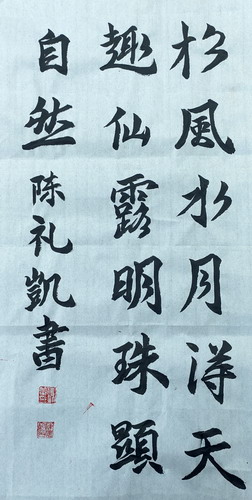 松風水月得天
趣仙露明珠顯
自然陈礼凱書